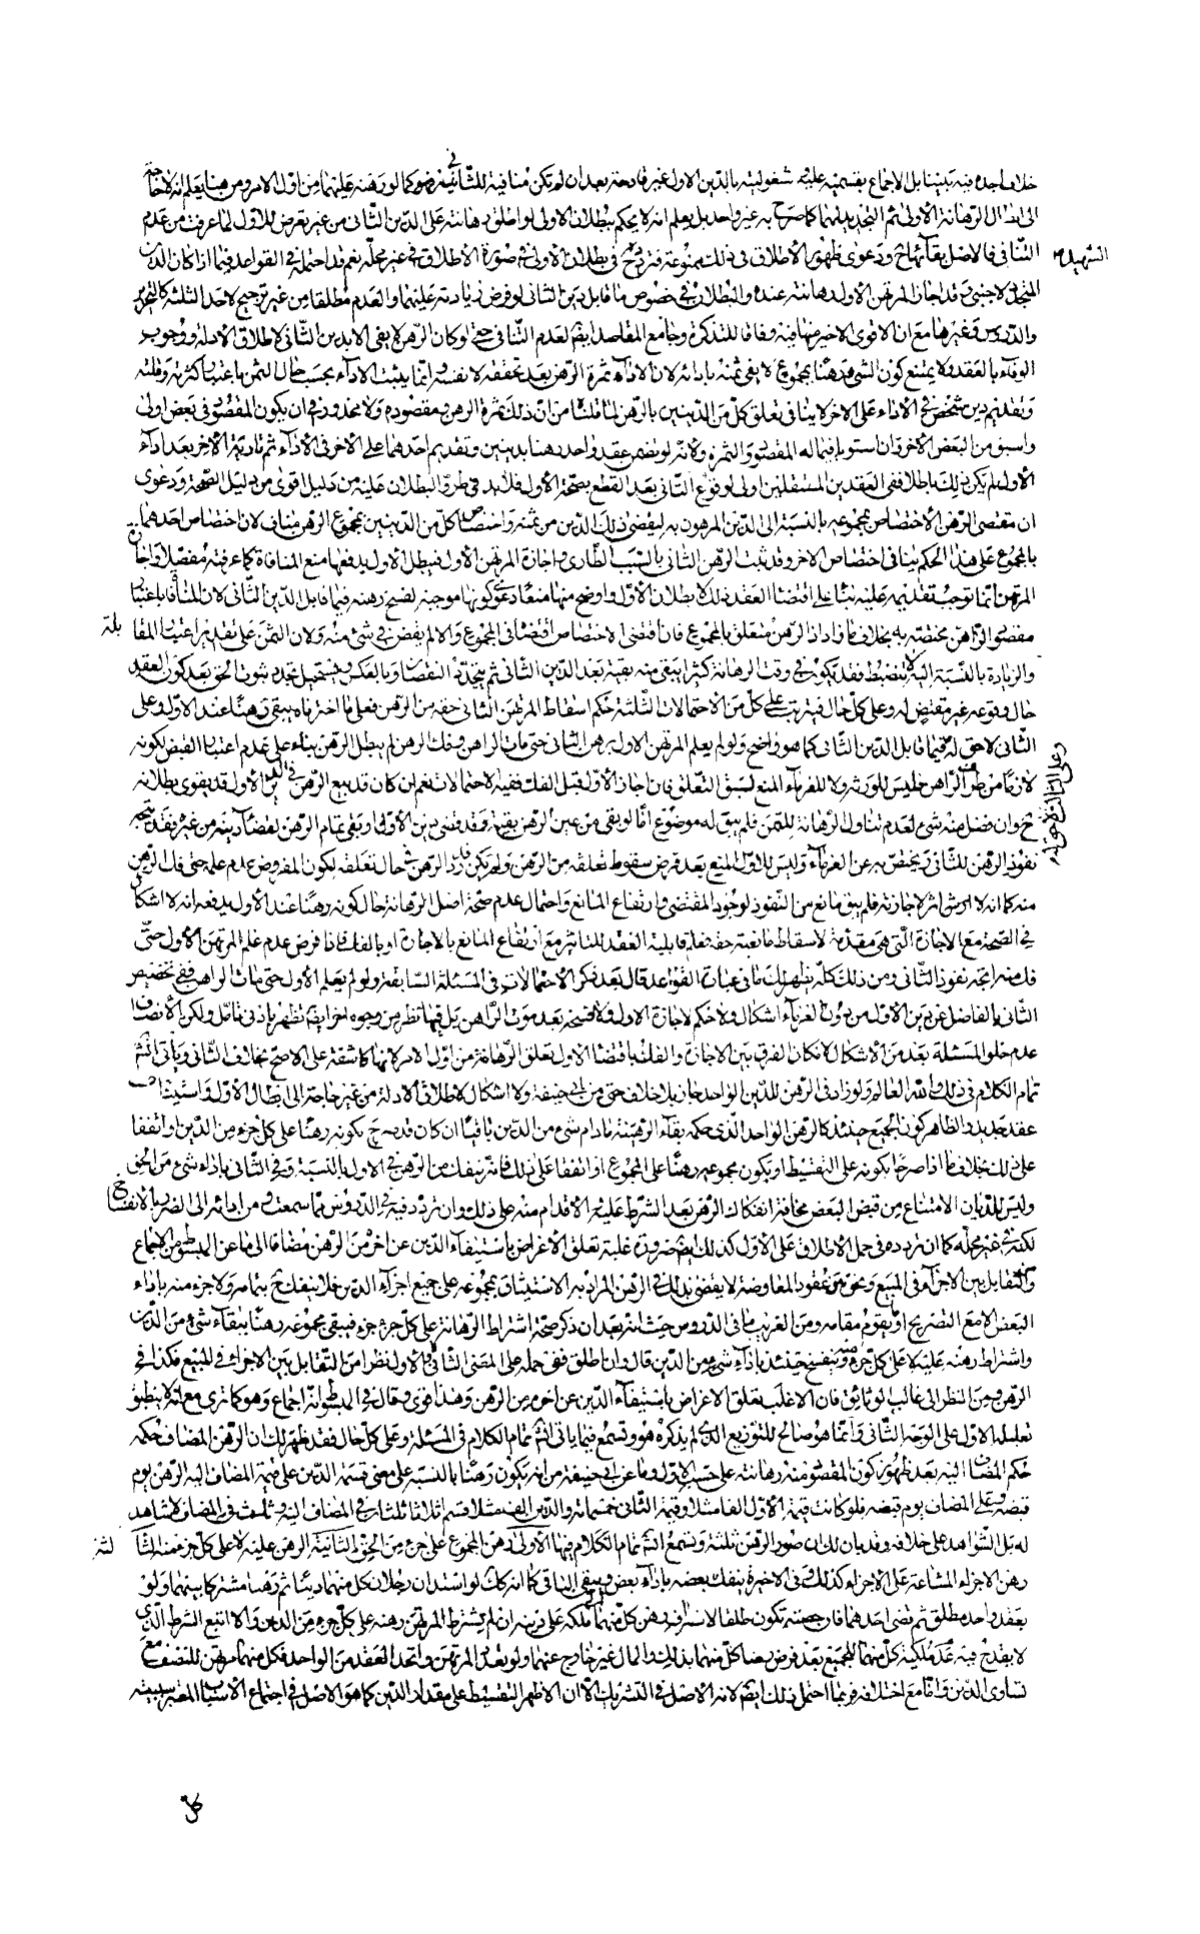 خلاف اجده فيه بيننا بل الاجماع بقسميه عليه شغوليته بالدين الاول غير قادحة بعد ان لم تكن منافية للثانية ضرورة كما لو رهنه عليهما من اول الامر ومن هنا يعلم انه لا حاجة
الى ابطال الرهانة الاولى ثم التجديد لهما كما صرح به غير واحد بل يعلم انه لا يحكم ببطلان الاولى لو اطلق رهانته على الدين الثانى من غير تعرض للاول لما عرفت من عدم
الثنافى فالاصل بقائها ح ودعوى ظهور الاطلاق فى ذلك ممنوعة فترجيح فى بطلان الاولى فى صورة الاطلاق فى غير محله نعم قد احتمله فى القواعد فيما اذا كان الدين
المتجدد لاجنبى وقد اجاز المرتهن الاول رهانته عنده والبطلان فى خصوص ما قابل دين الثانى لو فرض زيادته عليهما والعدم مطلقا من غير ترجيح لاحد الثلثة كالتحرير
والدروس وغيرها مع ان الاقوى الاخير منها فيه وفاقا للتذكرة وجامع المقاصد بقم لعدم الثنافى حتى لو كان الرهن لا يفى الا بدين الثانى لاطلاق الادلة ووجوب
الوفاء بالعقد ولا يمنع كون الشئ رهنا بمجموع لا يفى ثمنه بادائه لان الاداء ثمرة الرهن بعد تحققه لا نفسه وانما يثبت الاداء بحسب حال الثمن باعتبار كثرته وقلته
وتقديم دين شخص فى الاداء على الاخر لا ينافى تعلق كل من الدينين بالرهن لما قلنا من ان ذلك ثمرة الرهن ومقصوده ولا محذور فى ان يكون المقصود فى بعض اولى
واسبق من البعض الاخر وان استويا فيما له المقصود والثمرة ولانه لو تضمن عقد واحد رهنا بدينين وتقديم احدهما على الاخر فى الاداء ثم تادية الاخر بعد اداء
الاول لم يكن ذلك باطلا ففى العقدين المستقلين اولى لوقوع الثانى بعد القطع بصحة الاول فلا بد فى طرو البطلان عليه من دليل اقوى من دليل الصحة ودعوى
ان مقتضى الرهن الاختصاص بمجموعه بالنسبة الى الدين المرهون به ليقضى ذلك الدين من ثمنه واختصاص كل من الدينين بمجموع الرهن مناف لان اختصاص احدهما
بالمجموع على هذا الحكم ينافى اختصاص الاخر وقد ثبت الرهن الثانى بالسبب الطارى واجازة المرتهن الاول فيبطل الاول يدفعها منع المنافاة كما عرفته مفصلا واجازة
المرتهن انما توجب تقديمه عليه بناء على اقتضاء العقد ذلك لا بطلان الاول واوضح منها منعا دعوى كونها موجبة لفسخ رهنه فيما قابل الدين الثانى لان المنافاة باعتبار
مقصود الراهن مختصة به بخلاف ما زاد اذ الرهن متعلق بالمجموع فان اقتضى الاختصاص اقتضاه فى المجموع والا لم يقتض فى شئ منه ولان الثمن على تقدير اعتبار المقابلة
والزيادة بالنسبة اليه لا ينضبط فقد يكون فى وقت الرهانة كثيرا يبقى منه بقية بعد الدين الثانى ثم يتجدد النقصان وبالعكس فيستحيل تجدد ثبوت الحق بعد كون العقد
حال وقوعه غير مقتض له وعلى كل حال فيترتب على كل من الاحتمالات الثلثة حكم اسقاط المرتهن الثانى حقه من الرهن فعلى ما اخترناه يبقى رهنا عند الاول وعلى
الثانى لا حق له فيما قابل الدين الثانى كما هو واضح ولو لم يعلم المرتهن الاول برهن الثانى حتى مات الراهن وفك الرهن لم يبطل الرهن بناء على عدم اعتبار القبض لكونه
لازما من طرف الراهن فليس للورثة ولا للغرماء المنع لسبق التعلق فان اجاز الاول قبل الفك ففيه الاحتمالات نعم ان كان قد بيع الرهن فى دين الاول قد يقوى بطلانه
ح وان فضل منه شئ لعدم تناول الرهانة للثمن فلم يبق له موضوع اما لو بقى من عين الرهن بقية وقد قضى دين الاول او بقى تمام الرهن لقضاء دينه من غيره فقد يتجه
نفوذ الرهن للثانى ويختص به عن الغرماء وليس للاول المنع بعد فرض سقوط تعلقه من الرهن ولم يكن قد رد الرهن فى حال تعلقه لكون المفروض عدم علمه حتى فك الرهن
منه كما انه لا اثر لاجازته فلم يبق مانع من النفوذ لوجود المقتضى وارتفاع المانع واحتمال عدم صحة اصل الرهانة حال كونه رهنا عند الاول يدفعه انه لا اشكال
فى الصحة مع الاجازة التى هى مقدمة لاسقاط مانعية حقه فعلم قابلية العقد للتاثير مع ارتفاع المانع بالاجازة او بالفك فاذا فرض عدم علم المرتهن الاول حتى
فك منه اتجه نفوذ الثانى ومن ذلك كله يظهر لك ما فى عبارة القواعد قال بعد ذكر الاحتمالات فى المسئلة السابقة ولو لم يعلم الاول حتى مات الراهن ففى تخصيص
الثانى بالفاضل عن دين الاول من دون الغرماء اشكال ولا حكم لاجازة الاول ولا فسخه بعد موت الراهن بل فيها نظر من وجوه اخر ايضا تظهر بادنى تامل ولكن الانصاف
عدم خلو المسئلة بعد من الاشكال لامكان الفرق بين الاجازة والفك باقتضاء الاول تعلق الرهانة من اول الامر لانها كاشفة على الاصح بخلاف الثانى وياتى انشم
تمام الكلام فى ذلك والله العالم ولو زاد فى الرهن للدين الواحد جاز بلا خلاف حتى من ابى حنيفة ولا اشكال لاطلاق الادلة من غير حاجة الى ابطال الاول واستيناف
عقد جديد والظاهر كون الجميع حينئذ كالرهن الواحد الذى حكمه بقاء الرهينة ما دام شئ من الدين باقيا ان كان قد صرح بكونه رهنا على كل جزء من الدين او اتفقا
على ذلك بخلاف ما اذا صرحا بكونه على التقسيط او بكون مجموعه رهنا على المجموع او اتفقا على ذلك فانه ينفك من الرهن فى الاول بالنسبة وفى الثانى باداء شئ من الحق
وليس للديان الامتناع من قبض البعض مخافة انفكاك الرهن بعد الشرط عليه الاقدام منه على ذلك وان تردد فيه فى الدروس مما سمعت ومن ادائه الى الضرر بالانفساخ
لكنه فى غير محله كما ان تردده فى حمل الاطلاق على الاول كذلك ايضا ضرورة غلبة تعلق الاغراض باستيفاء الدين عن اخر من الرهن مضافا الى ما عن المبسوط من الاجماع
والتقابل بين الاجزاء فى المبيع ونحوه من عقود المعاوضة لا يقضى بذلك فى الرهن المراد به الاستيثاق بمجموعه على جميع اجزاء الدين فلا ينفك ح بتمامه ولا جزء منه باداء
البعض الا مع التصريح او ما يقوم مقامه ومن الغريب ما فى الدروس حيث انه بعد ان ذكر صحة اشتراط الرهانة على كل جزء جزء فيبقى بمجموعه رهنا ببقاء شئ من الدين
واشتراط رهنه عليه لا على كل جزء منه فينفسخ حينئذ باداء شئ من الدين قال وان اطلق ففى حمله على المعنى الثانى او الاول نظر من التقابل بين الاجزاء فى المبيع فكذا فى
الرهن ومن النظر الى غالب الوثائق فان الاغلب تعلق الاغراض باستيفاء الدين عن اخره من الرهن وهذا اقوى وقال فى المبسوط انه اجماع وهو كما ترى مع انه لا ينطبق
تعليله الاول على الوجه الثانى وانما هو صالح للتوزيع الذى لم يذكره هو وتسمع فيما ياتى انشم تمام الكلام فى المسئلة وعلى كل حال فقد ظهر لك ان الرهن المضاف حكمه
حكم المضاف اليه بعد ظهور كون المقصود منه رهانته على حسب الاول وما عن ابى حنيفة من انه يكون رهنا بالنسبة على معنى قسمة الدين على قيمة المضاف اليه الرهن يوم
قبضه وعلى المضاف يوم قبضه فلو كانت قيمة الاول الفا مثلا وقيمة الثانى خمسمائة والدين الف مثلا قسم اثلاثا ثلثان فى المضاف اليه وثلث فى المضاف لا شاهد
له بل الشواهد على خلافه وقد بان لك ان صور الرهن ثلثة وتسمع انشم تمام الكلام فيها الاولى رهن المجموع على جزء من الحق والثانية الرهن عليه لا على كل جزء منه الثالثة
رهن الاجزاء المشاعة على الاجزاء كذلك وفى الاخيرة ينفك بعضه باداء بعض ويبقى الباقى كما انه كك لو استدان رجلان كل منهما دينا ثم رهنا مشتركا بينهما ولو
بعقد واحد مطلق ثم قضى احدهما فان حصته تكون طلقا لانصراف رهن كل منهما ملكه على دينه ان لم يشترط المرتهن رهنه على كل جزء من الدين والا اتبع الشرط الذى
لا يقدح فيه عدم ملكية كل منهما للجميع بعد فرض رضا كل منهما بذلك والمال غير خارج عنهما ولو تعدد المرتهن واتحد العقد من الواحد فكل منهما مرتهن للنصف مع
تساوى الدين واما مع اختلافه فربما احتمل ذلك ايضا لانه الاصل فى التشريك الا ان الاظهر التقسيط على مقدار الدين كما هو الاصل فى اجتماع الاسباب المعتبر سببيته
كل